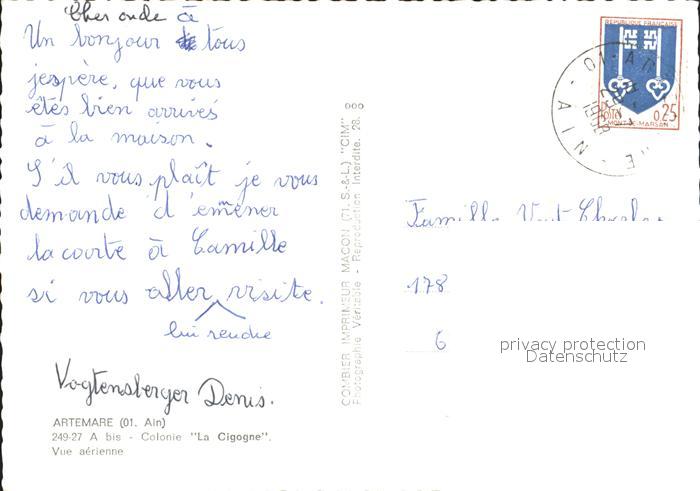 Cher oncle
Un bonjour à tous
jespère, que vous
êtes bien arrivés
à la maison.
S'il vous plaît je vous
demande d'emener
la carte à Camille
si vous aller lui rendre visite.
Vogtensberger Denis.
ARTEMARE (01. Ain)
249-27 A bis - Colonie "La Cigogne".
Vue aérienne
COMBIER IMPRIMEUR MACON (71. S.-&-L.) "CIM"
Photographie Véritable - Reproduction Interdite. 28.
REPUBLIQUE FRANÇAISE
0,25
MONT-DE-MARSAN
01
AIN
Famille
178
6
privacy protection
Datenschutz